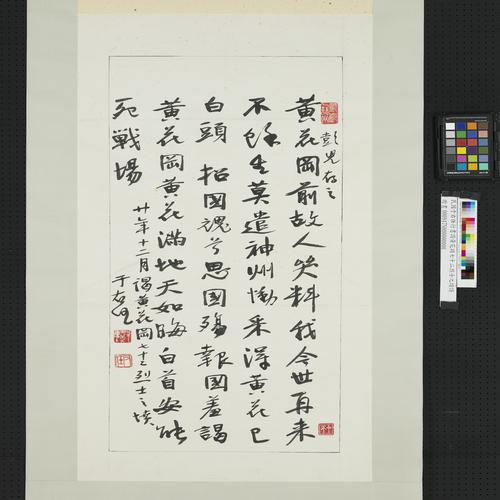 黃花岡前故人笑料我今世再來
不能生莫遣神州慟采得黃花已
白頭 招國魂兮思國殤報國羞謁
黃花岡黃花滿地天如晦白首安能
死戰場
廿年十二月謁黃花岡七十二烈士之墳
于右任
彭兒存之